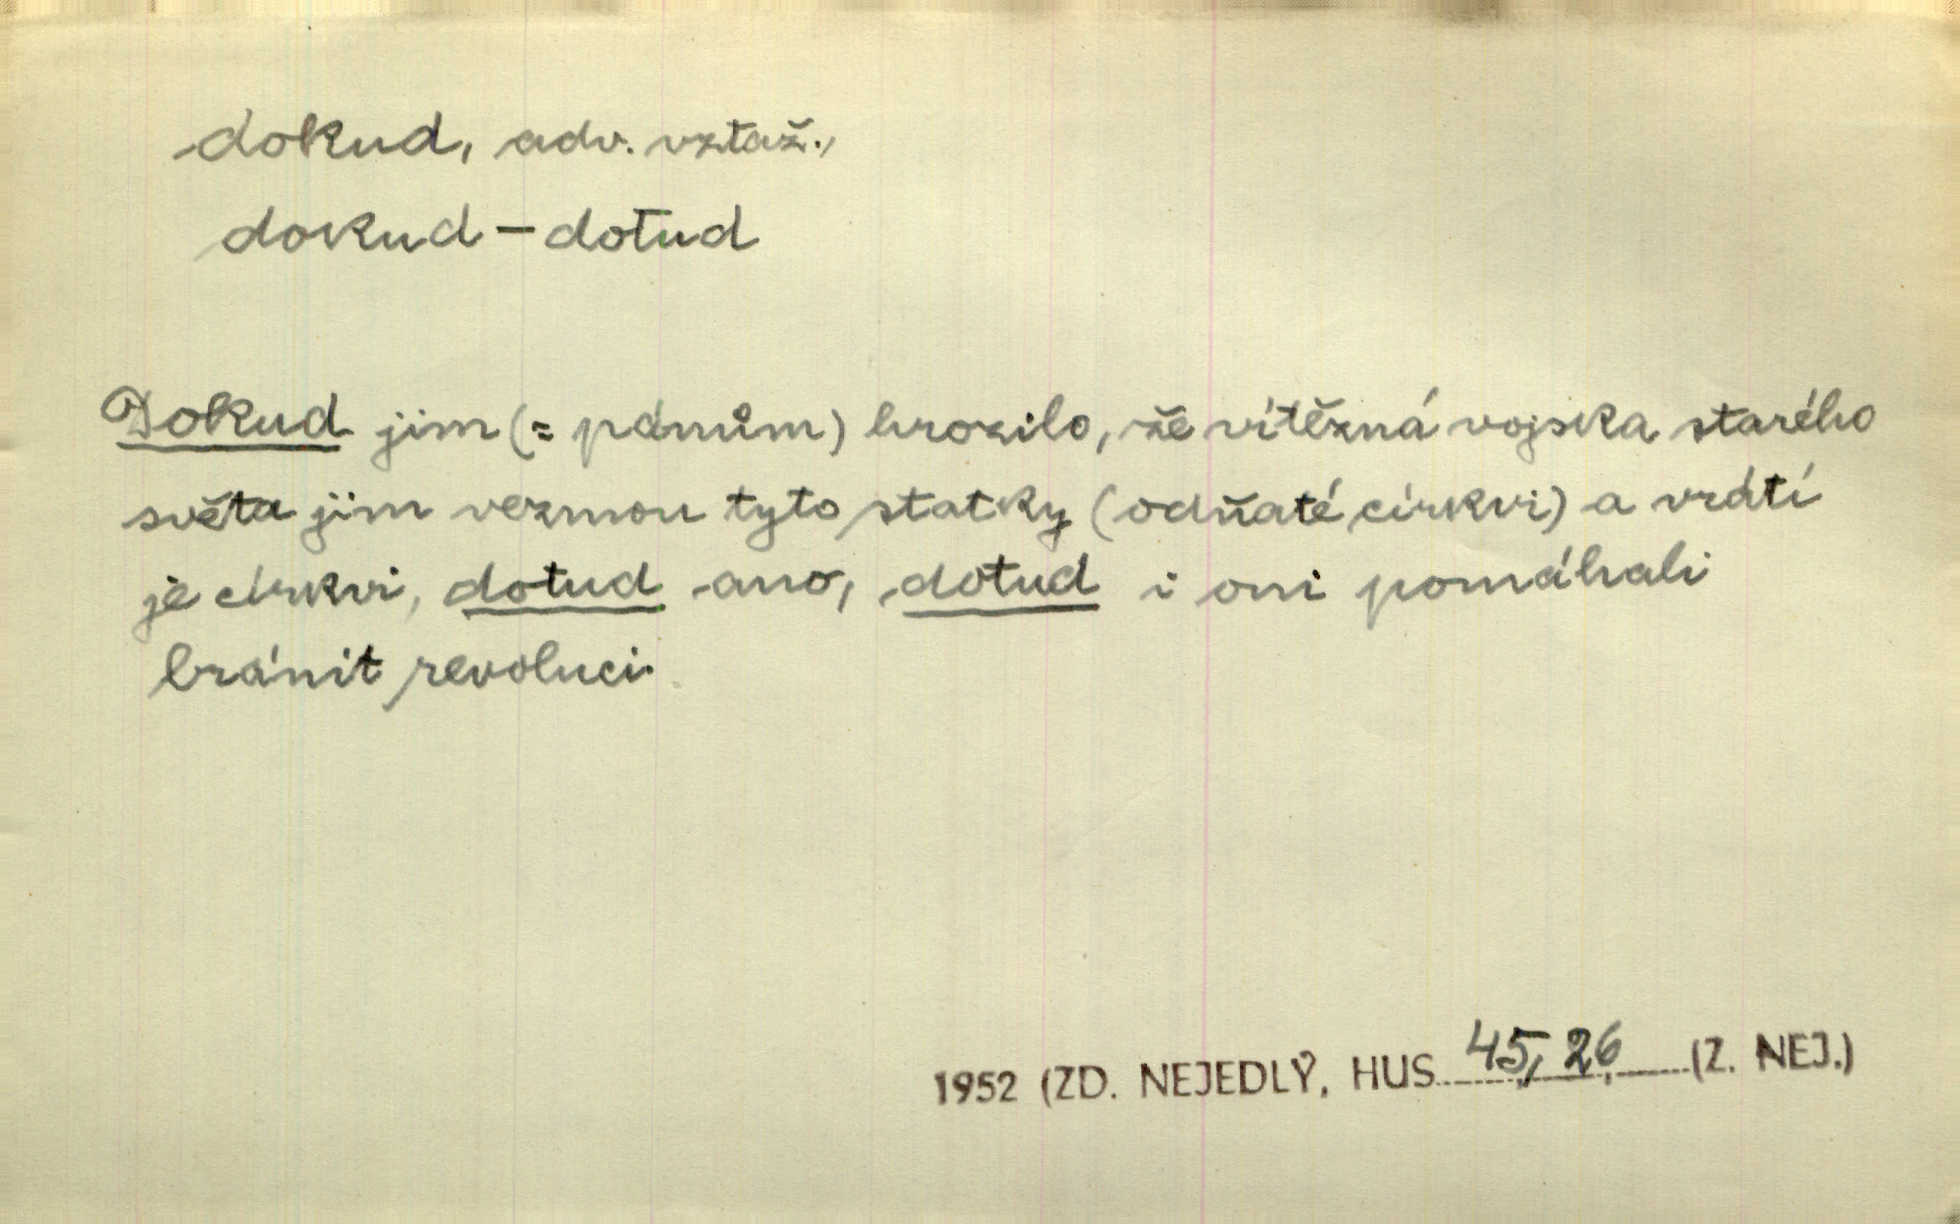 dokud, adv. vztaž.,
dokud – dotud
Dokud jim (= pánům) hrozilo, že vítězná vojska starého
světa jim vezmou tyto statky (odňaté církvi) a vrátí
je církvi, dotud ano, dotud i oni pomáhali
bránit revoluci.
1952 (ZD. NEJEDLÝ, HUS 45, 26 (Z. NEJ.)